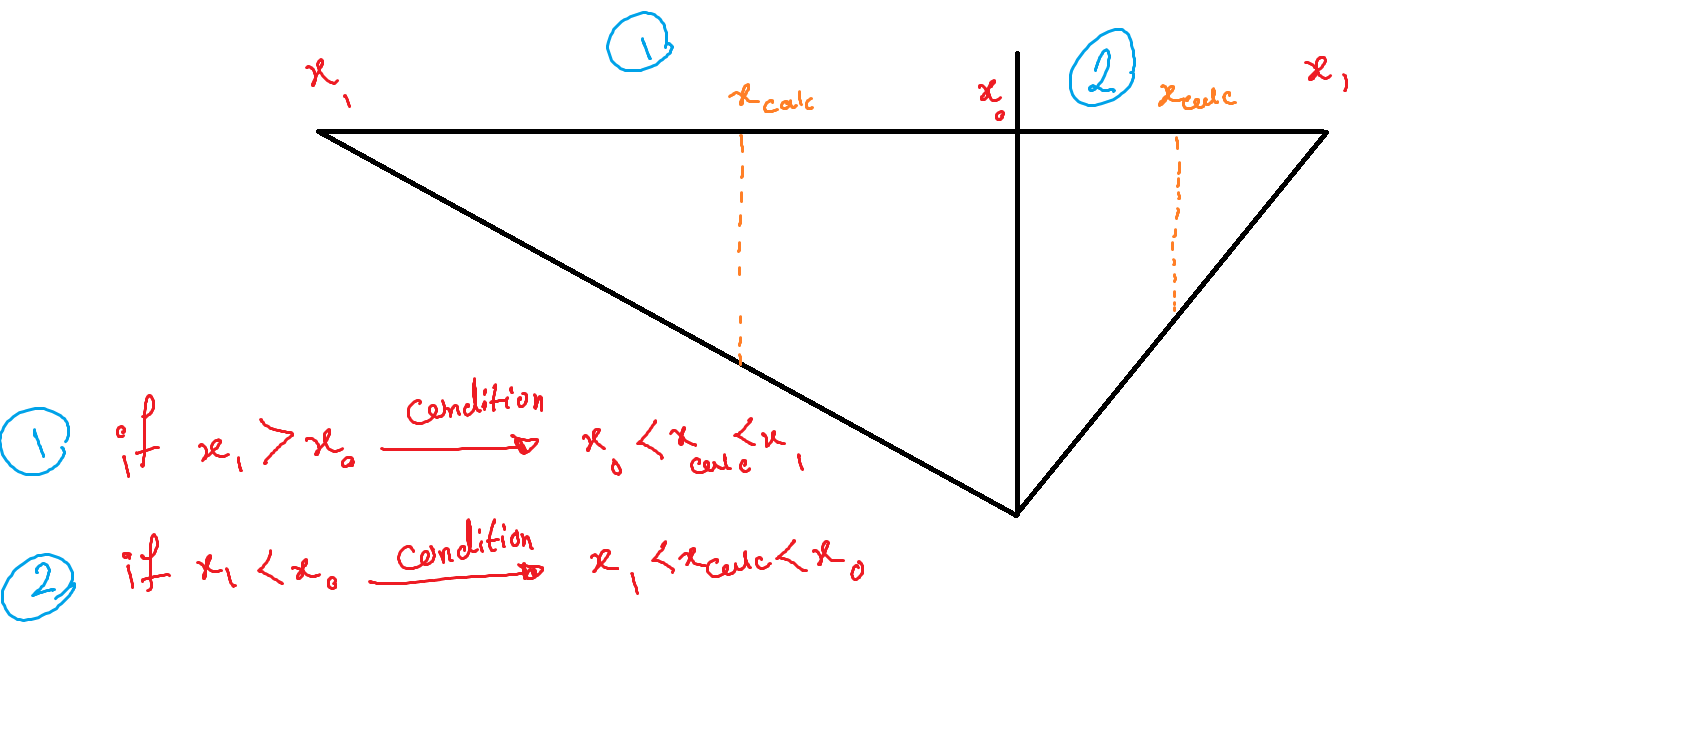 ①
②
x₁
x_calc
x₀
x_calc
x₁
① if x₁ > x₀ condition x₀ < x_calc < x₁
② if x₁ < x₀ condition x₁ < x_calc < x₀